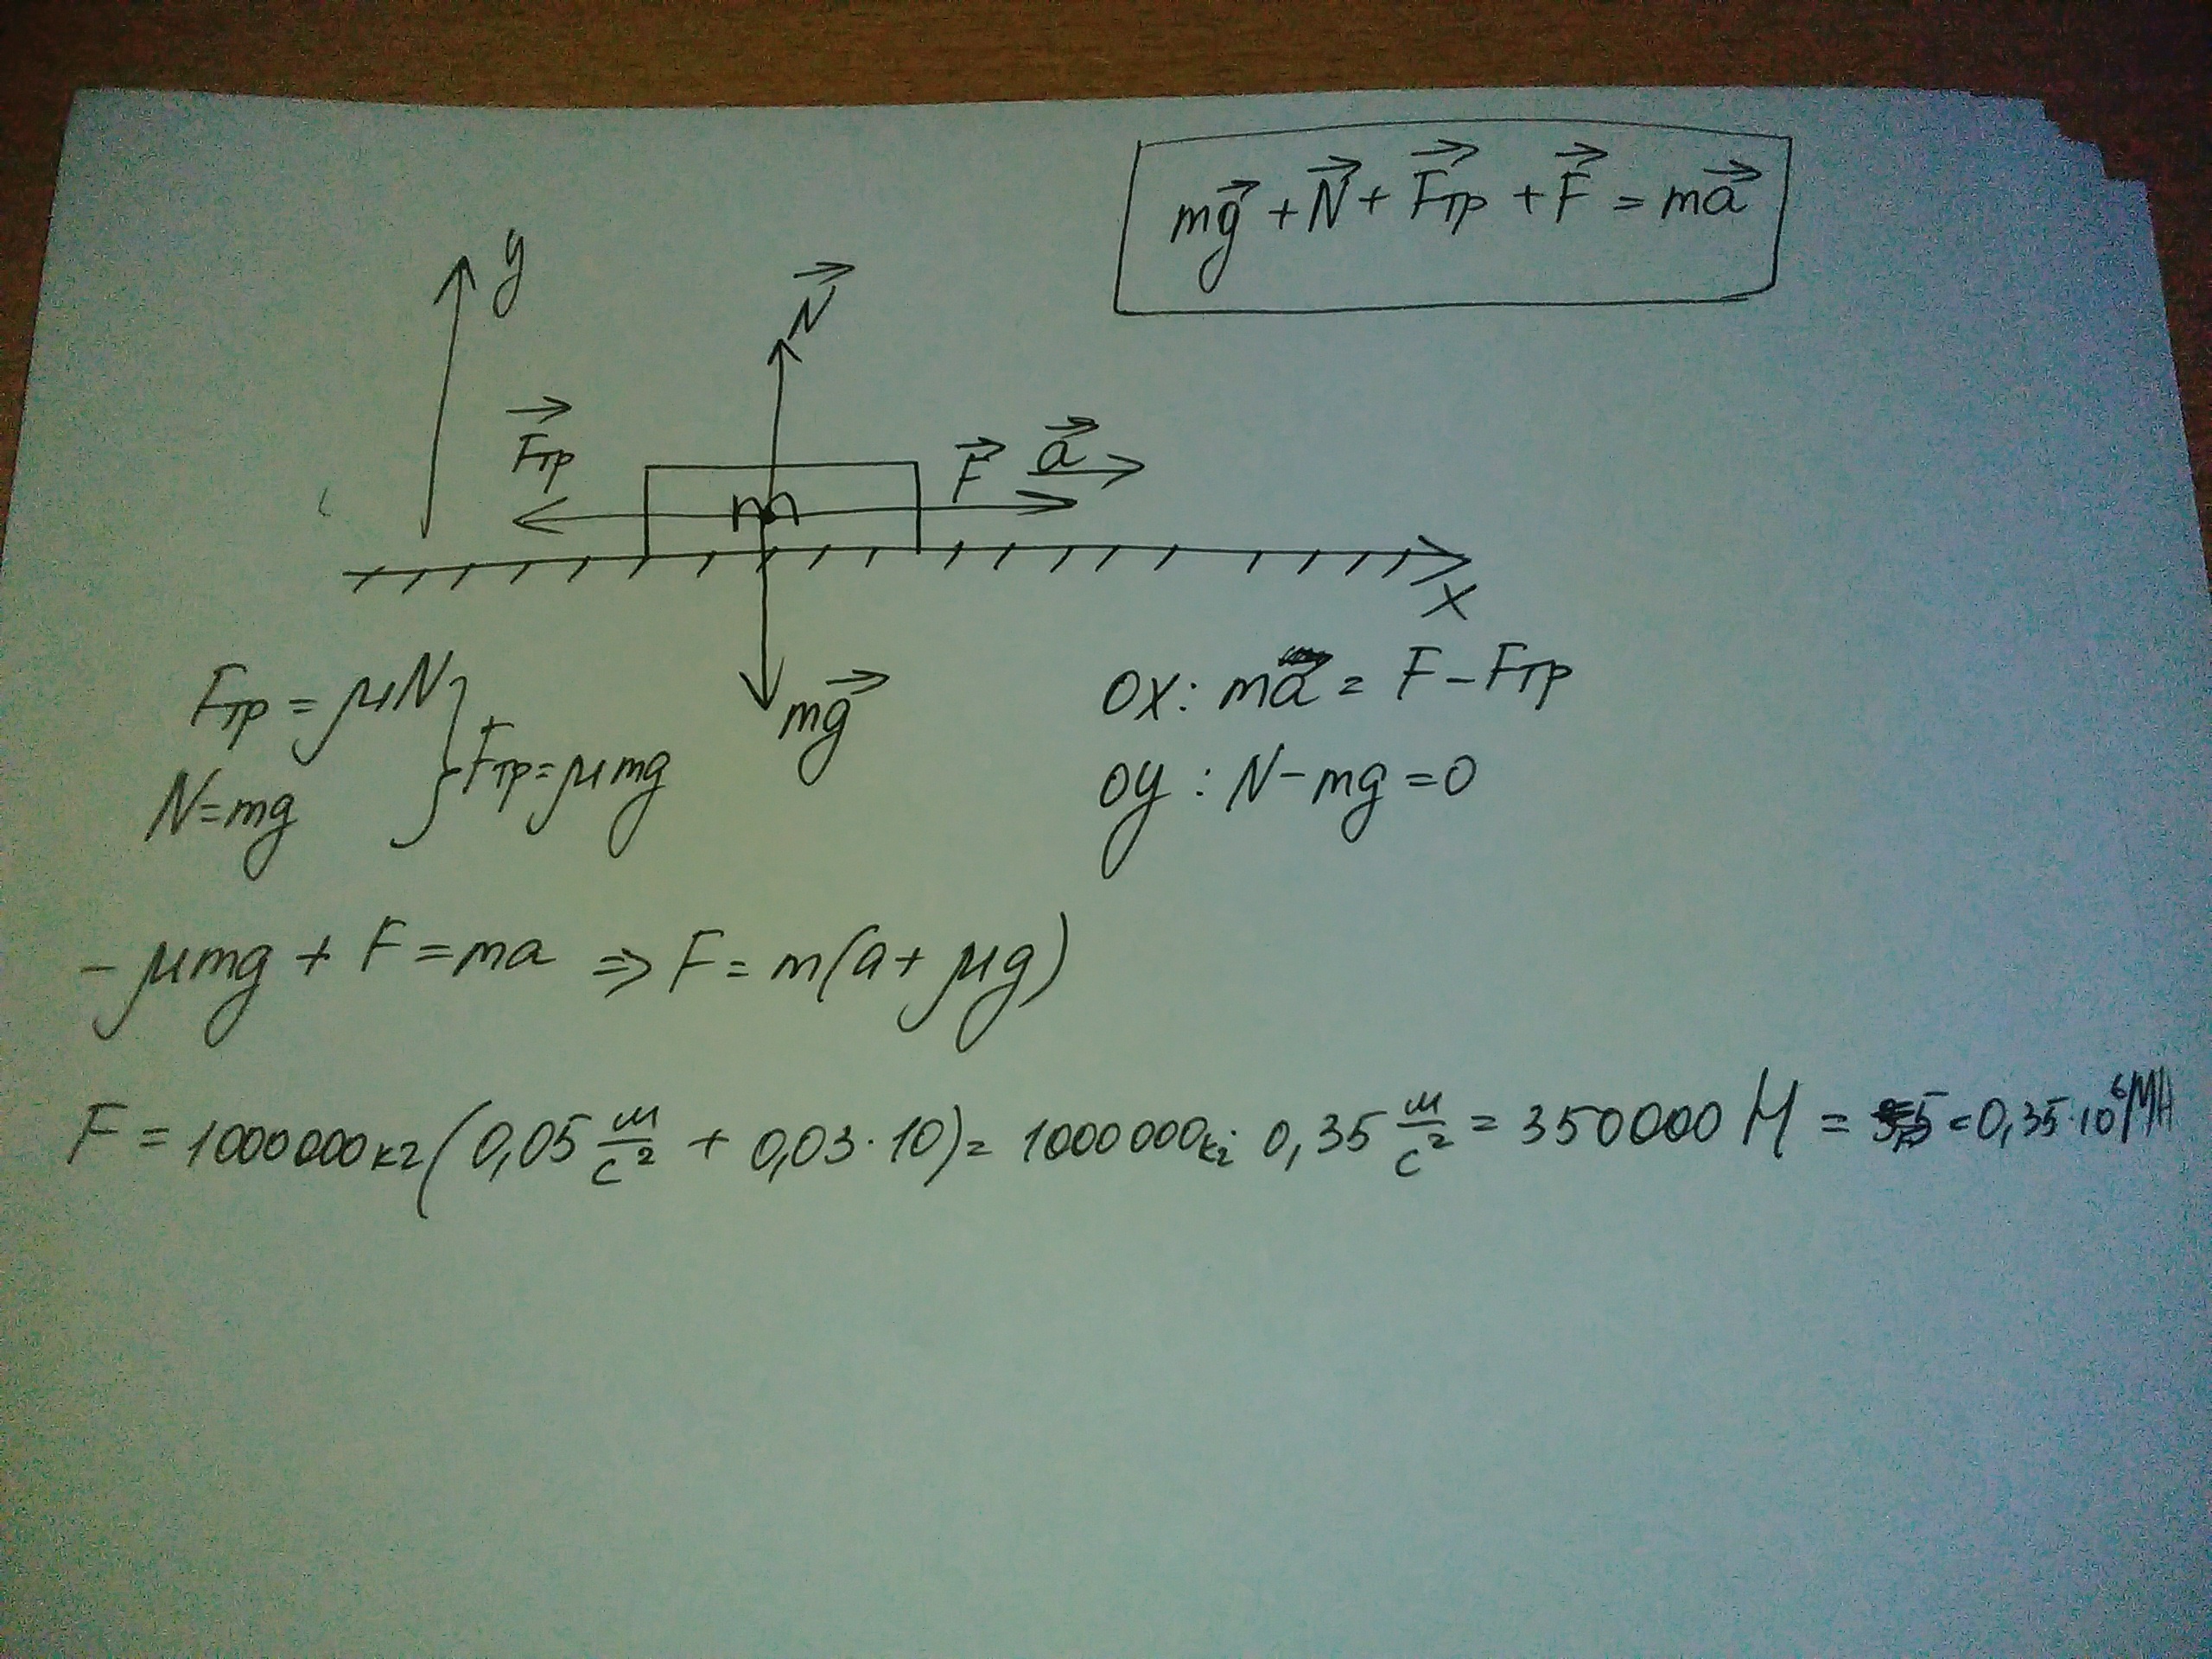 mg⃗ + N⃗ + F⃗тр + F⃗ = ma⃗
y
N⃗
F⃗тр
F⃗ a⃗
m
x
mg⃗
Fтр = μN
N = mg
} Fтр = μmg
OX: ma = F − Fтр
OY: N − mg = 0
− μmg + F = ma ⇒ F = m(a + μg)
F = 1000000кг (0,05 м/с² + 0,03 · 10) = 1000000кг · 0,35 м/с² = 350000 Н = = 0,35 · 10⁶ МН